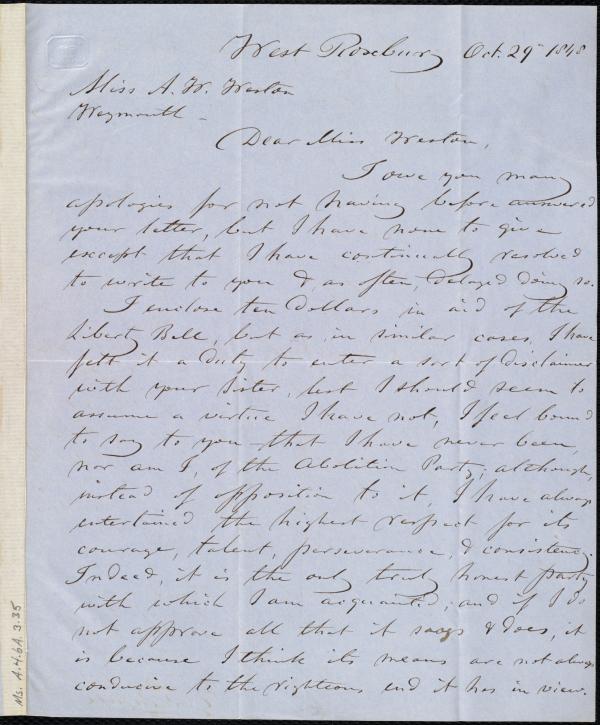 West Roxbury Oct. 29th 1848
Miss A. W. Weston
Weymouth -
Dear Miss Weston,
I owe you many
apologies for not having before answered
your letter, but I have none to give
except that I have continually resolved
to write to you & as often, delayed doing so.
I enclose ten Dollars in aid of the
Liberty Bell, but as in similar cases, I have
felt it a duty to enter a sort of disclaimer
with your Sister, lest I should seem to
assume a virtue I have not, I feel bound
to say to you that I have never been,
nor am I, of the Abolition Party; although,
instead of opposition to it, I have always
entertained the highest respect for its
courage, talent, perseverance, & consistency.
Indeed, it is the only truly honest party
with which I am acquainted; and if I do
not approve all that it says & does, it
is because I think its means are not always
conducive to the righteous end it has in view.
Ms. A.4.6A.3.35